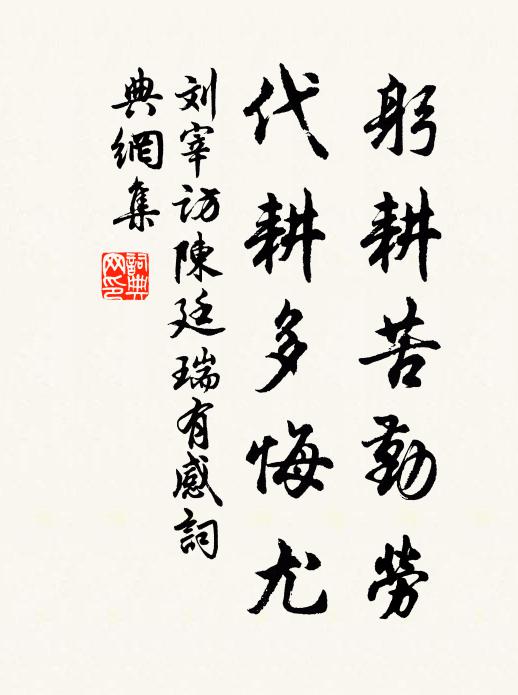 躬耕苦勤勞
代耕多悔尤
刘宰访陳廷瑞有感詞
典網集
詞典
网印